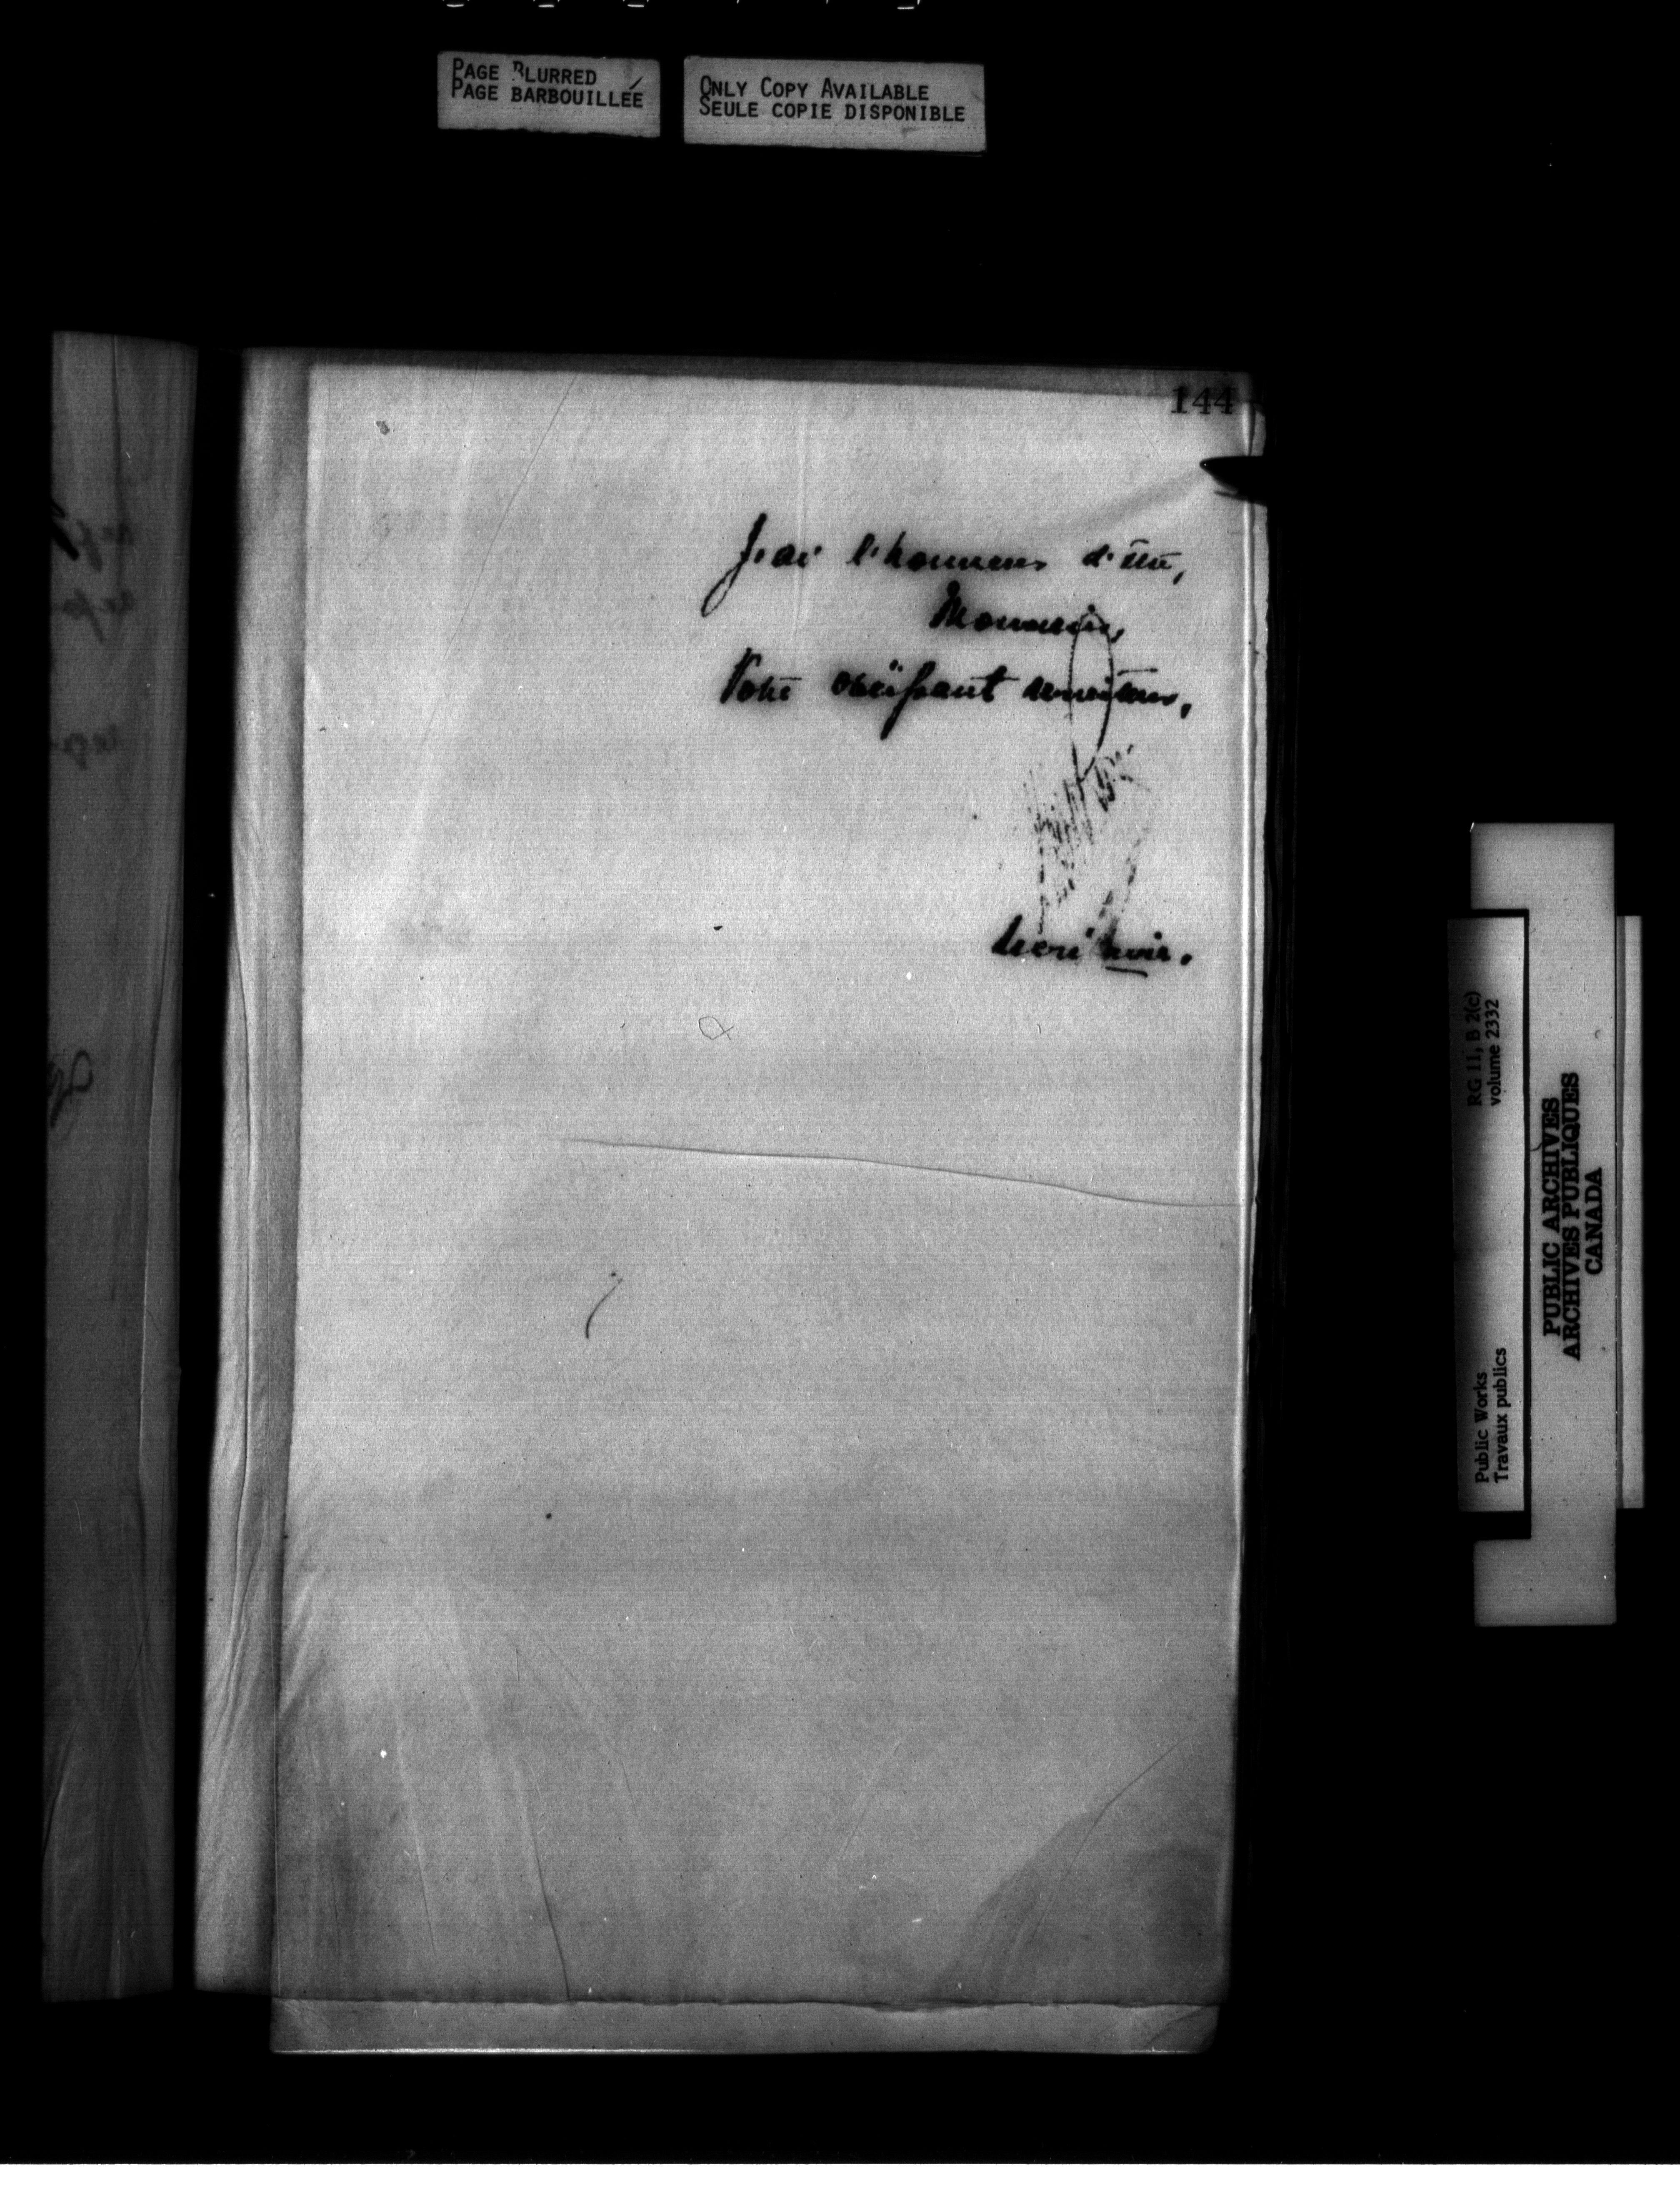 PAGE BLURRED
PAGE BARBOUILLÉE
ONLY COPY AVAILABLE
SEULE COPIE DISPONIBLE
144
J'ai l'honneur d'être,
Monsieur,
Votre obéissant serviteur,
Secrétaire.
RG 11, B 2(c)
volume 2332
Public Works
Travaux publics
PUBLIC ARCHIVES
ARCHIVES PUBLIQUES
CANADA